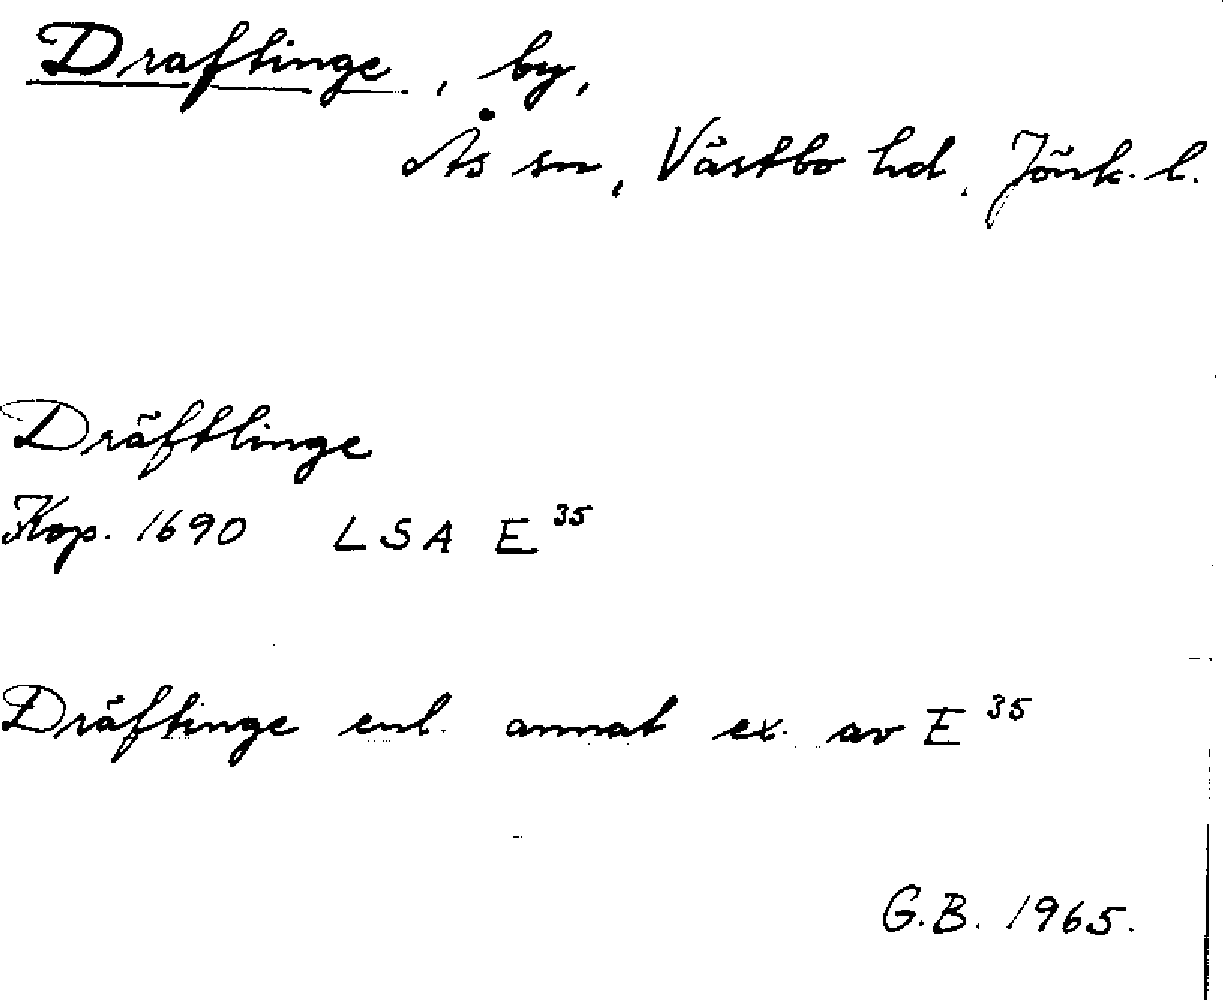 Draftinge, by,
Ås sn, Västbo hd, Jönk. l.
Dräftlinge
Kop. 1690 LSA E 35
Dräftinge enl. annat ex. av E 35
G.B. 1965.